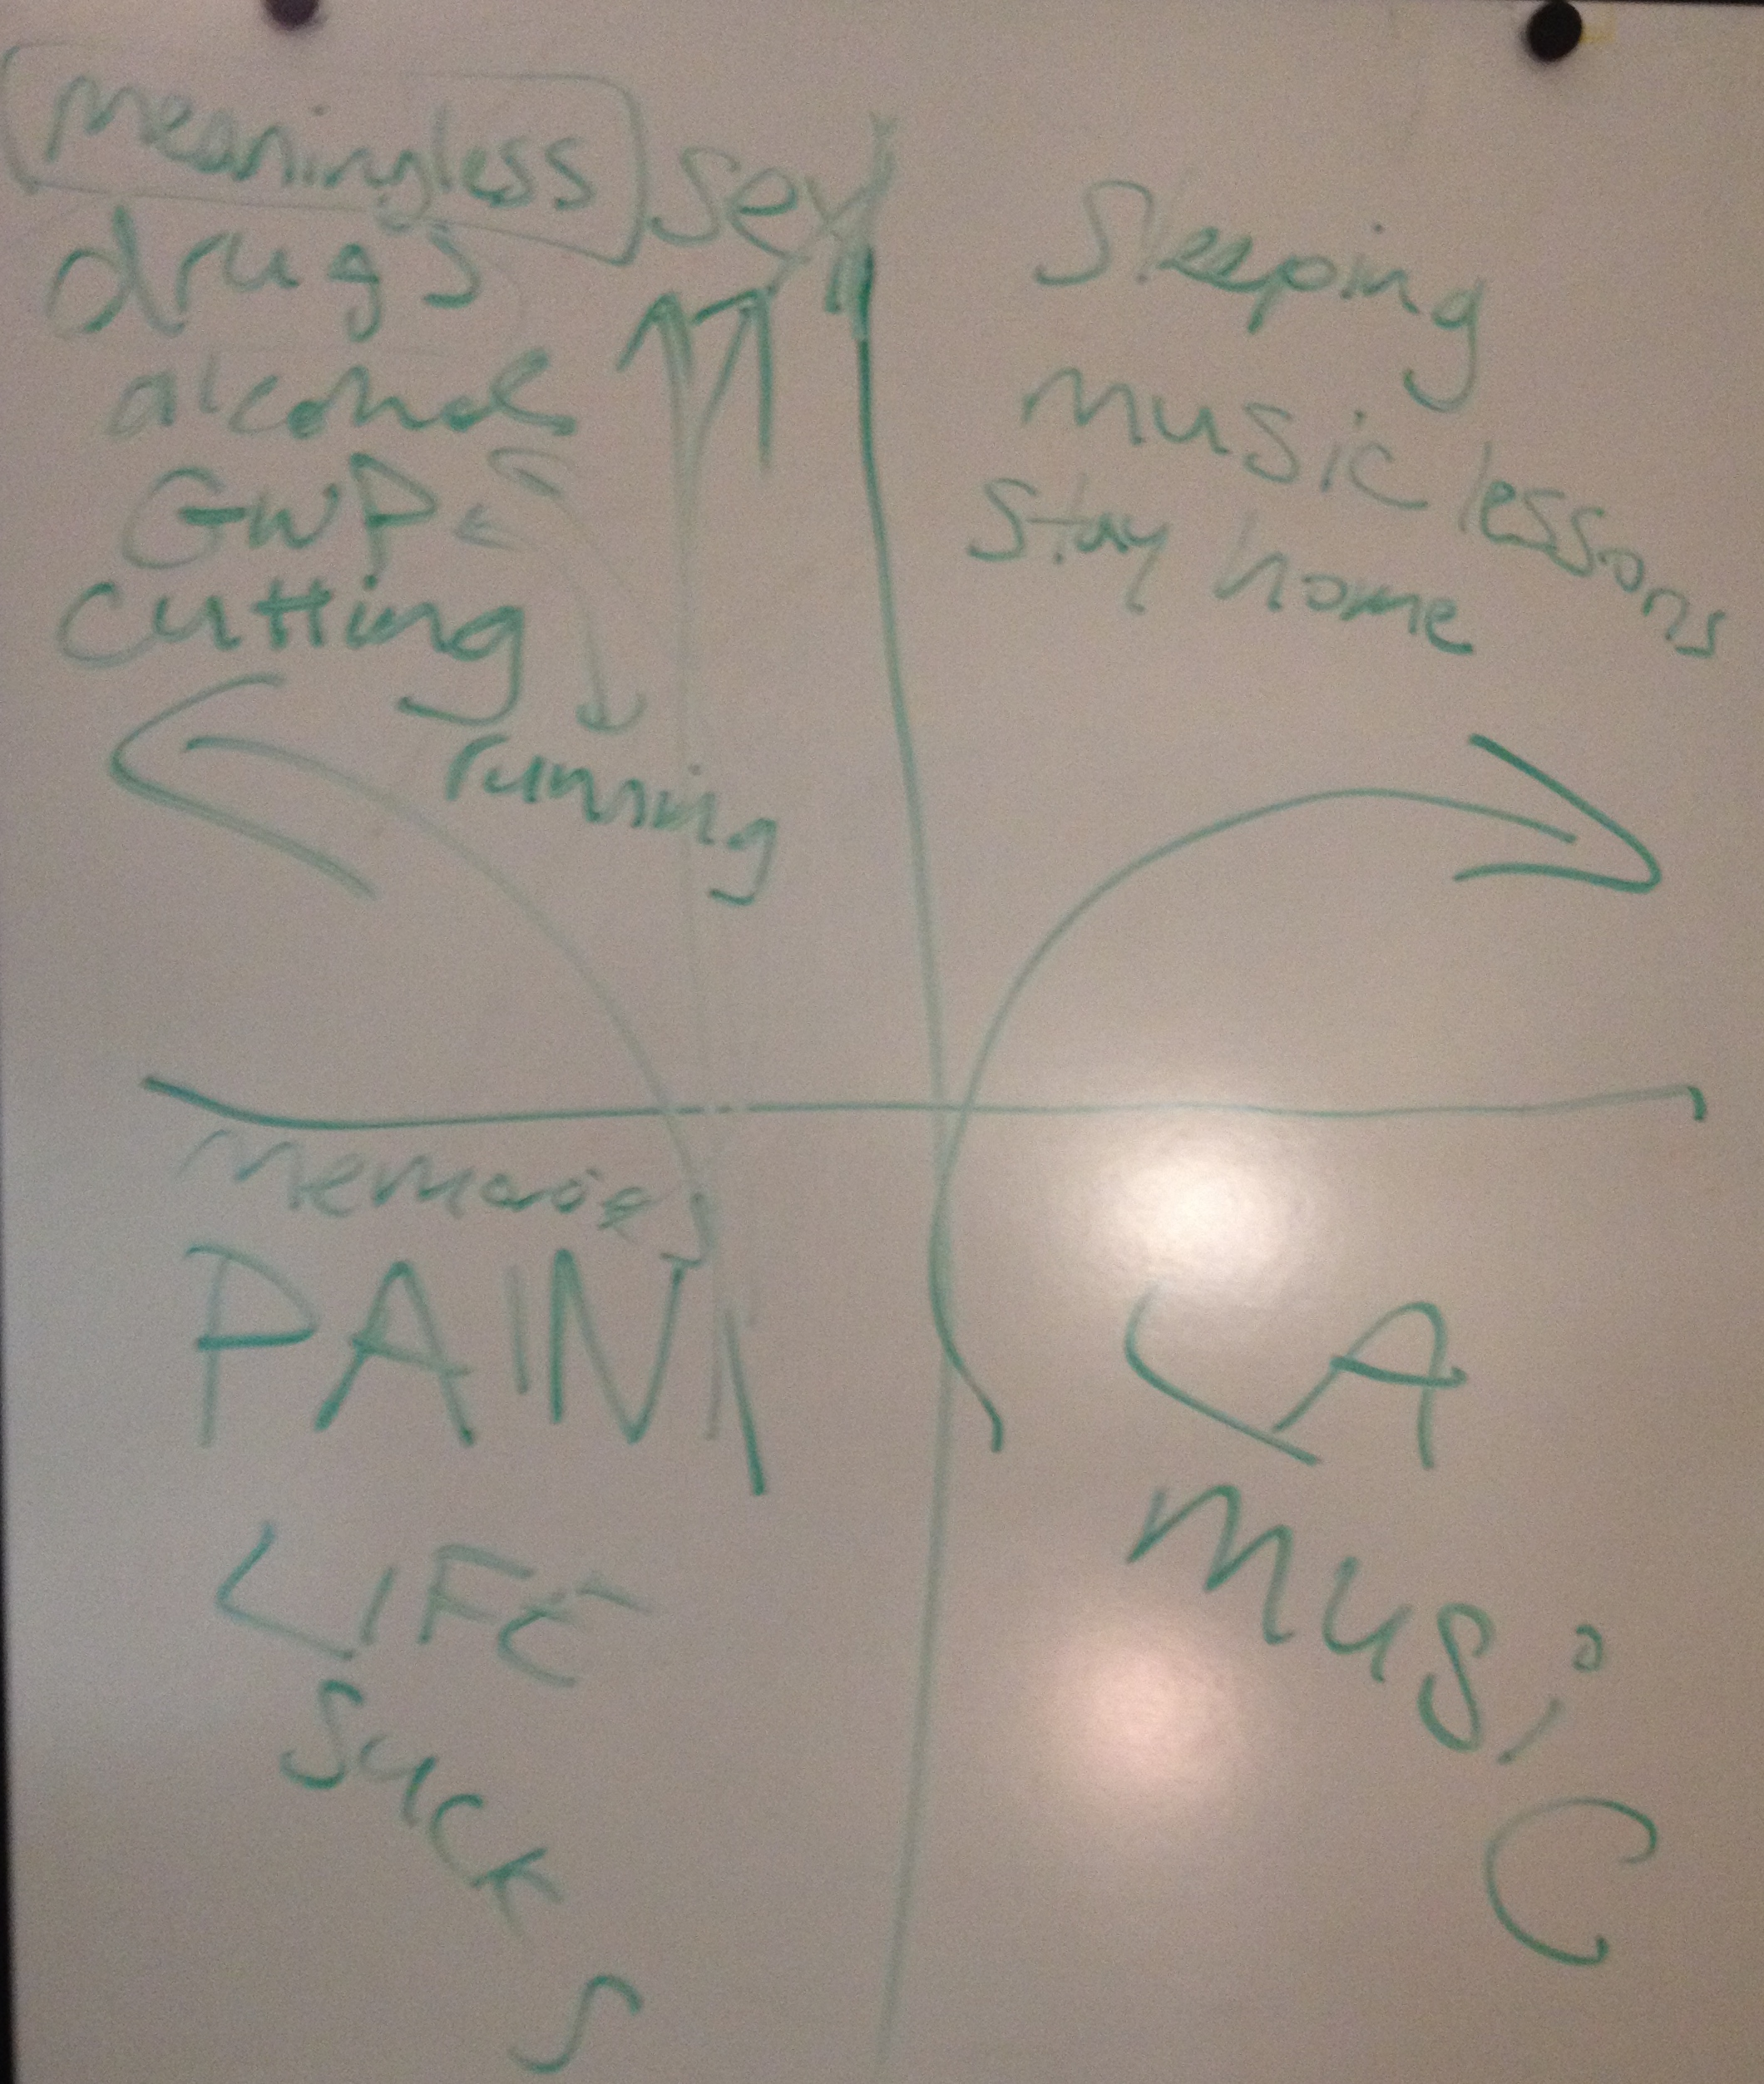 meaningless sex
drugs
alcohol
GWP
cutting
running
Sleeping
music lessons
Stay home
Memories
PAIN
LIFE
SUCKS
LA
music